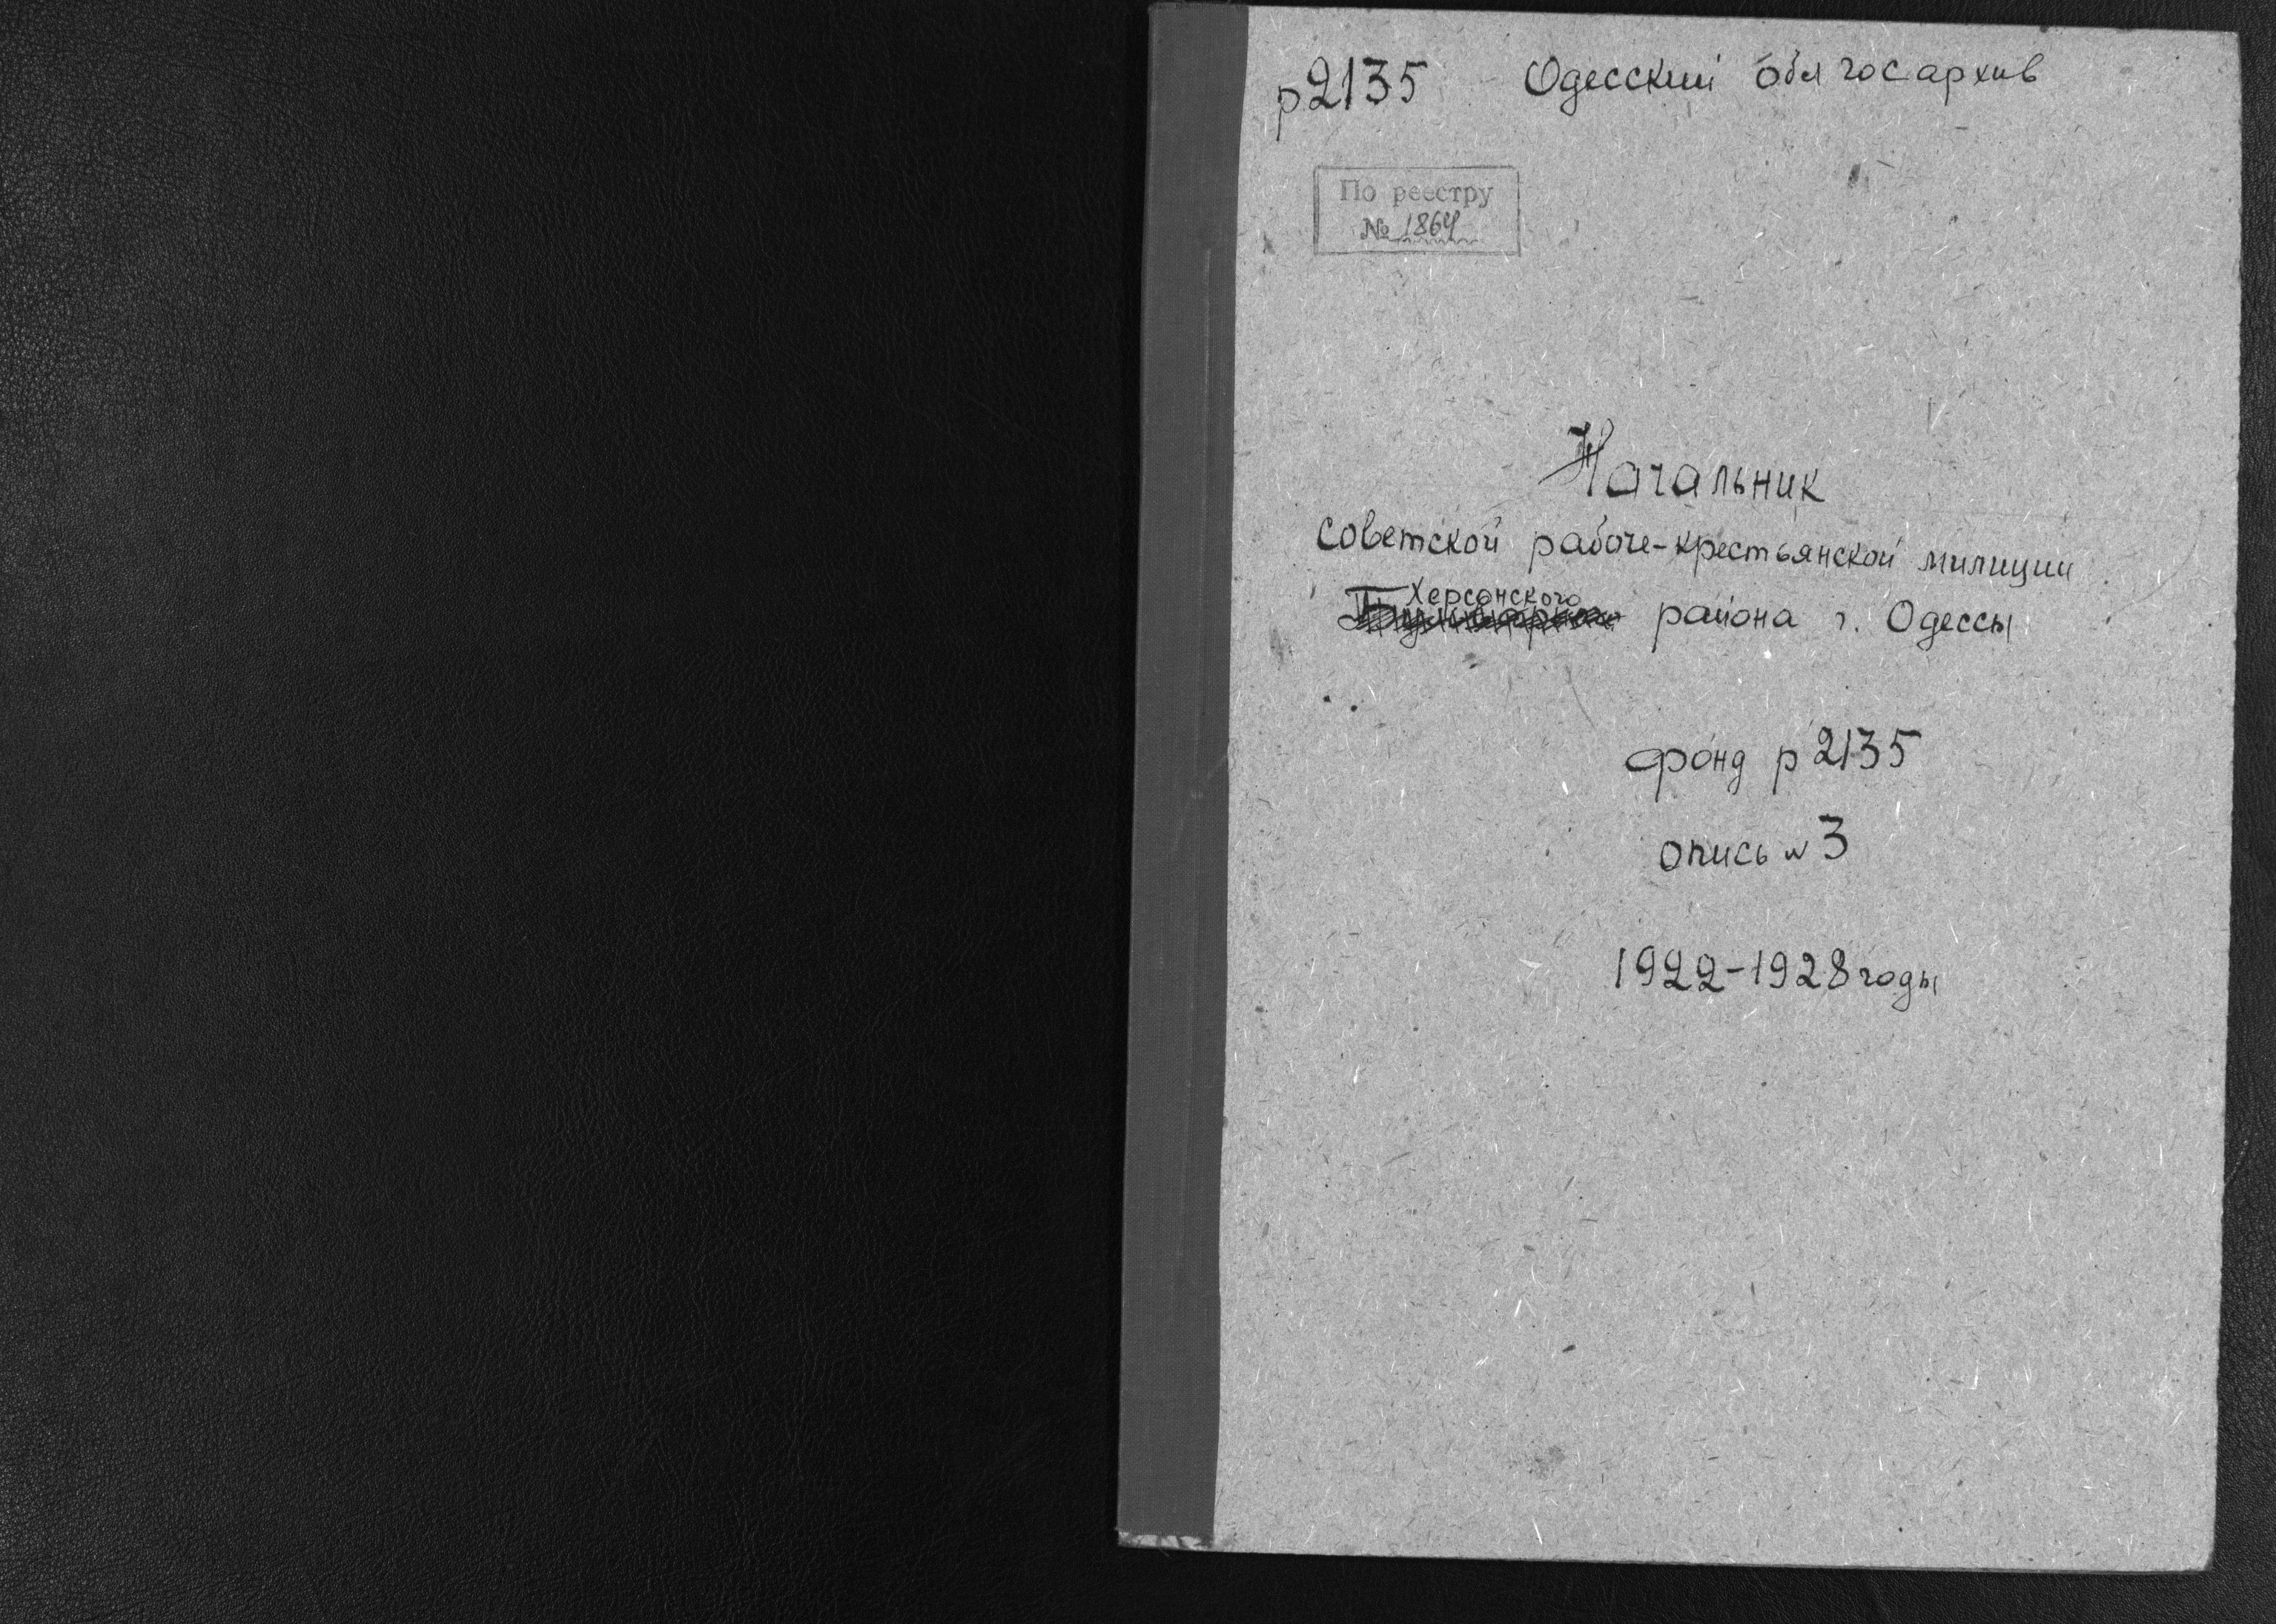 р2135 Одесский облгосархив
По реестру
№ 1864
Начальник
советской рабоче-крестьянской милиции
Херсонского
района г. Одессы
фонд р2135
опись № 3
1922-1928 годы